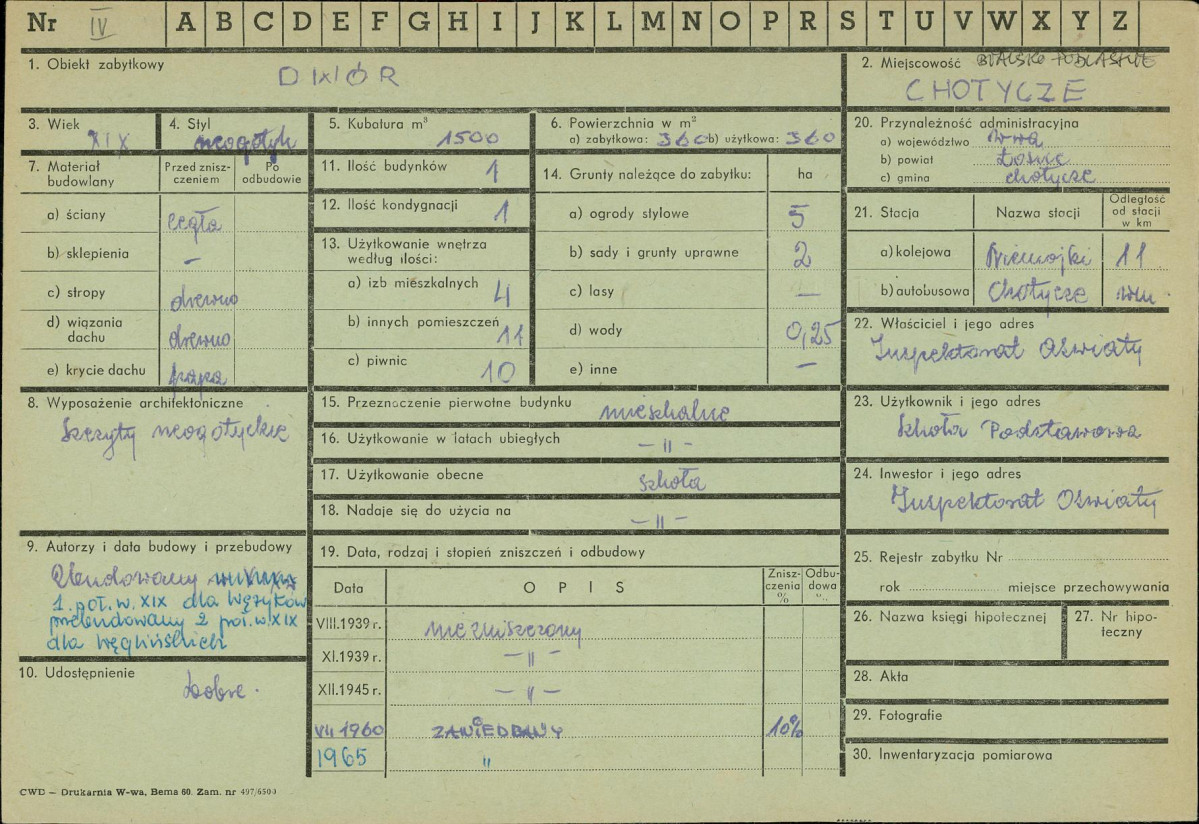 Nr IV A B C D E F G H I J K L M N O P R S T U V W X Y Z
1. Obiekt zabytkowy
DWÓR
2. Miejscowość BIALSKO-PODLASKIE
CHOTYCZE
3. Wiek
XIX
4. Styl
neogotyk
5. Kubatura m³
1500
6. Powierzchnia w m²
a) zabytkowa: 360 b) użytkowa: 360
7. Materiał budowlany
Przed zniszczeniem
Po odbudowie
a) ściany cegła
b) sklepienia –
c) stropy drewno
d) wiązania dachu drewno
e) krycie dachu papa
8. Wyposażenie architektoniczne
Szczyty neogotyckie
9. Autorzy i data budowy i przebudowy
Zbudowany
1. poł. w. XIX dla Wężyków
przebudowany 2 poł. w. XIX
dla Węglińskich
10. Udostępnienie
Dobre.
11. Ilość budynków 1
12. Ilość kondygnacji 1
13. Użytkowanie wnętrza
według ilości:
a) izb mieszkalnych 4
b) innych pomieszczeń 11
c) piwnic 10
14. Grunty należące do zabytku: ha
a) ogrody stylowe 5
b) sady i grunty uprawne 2
c) lasy –
d) wody 0,25
e) inne –
15. Przeznaczenie pierwotne budynku mieszkalne
16. Użytkowanie w latach ubiegłych – " –
17. Użytkowanie obecne szkoła
18. Nadaje się do użycia na – " –
19. Data, rodzaj i stopień zniszczeń i odbudowy
Data
O P I S
Zniszczenia %
Odbudowa %
VIII.1939 r. niezniszczony
XI.1939 r. – " –
XII.1945 r. – " –
VII 1960 ZANIEDBANY 10%
1965 "
20. Przynależność administracyjna
a) województwo W-wa
b) powiat Łosice
c) gmina Chotycze
21. Stacja
Nazwa stacji
Odległość od stacji w km
a) kolejowa Niemojki 11
b) autobusowa Chotycze wm
22. Właściciel i jego adres
Inspektorat Oświaty
23. Użytkownik i jego adres
Szkoła Podstawowa
24. Inwestor i jego adres
Inspektorat Oświaty
25. Rejestr zabytku Nr
rok miejsce przechowywania
26. Nazwa księgi hipotecznej
27. Nr hipoteczny
28. Akta
29. Fotografie
30. Inwentaryzacja pomiarowa
CWD – Drukarnia W-wa, Bema 60. Zam. nr 497/6500